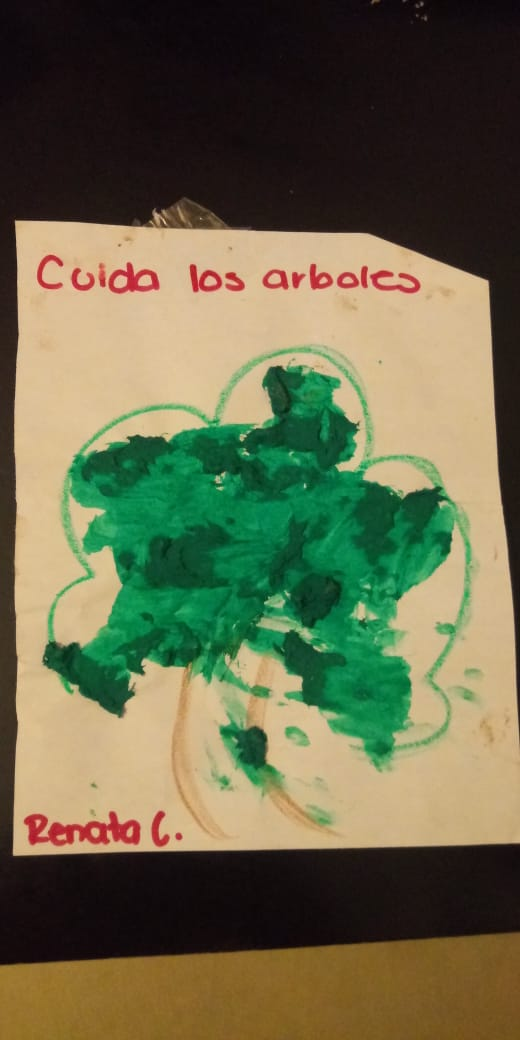 Cuida los arboles
Renata C.